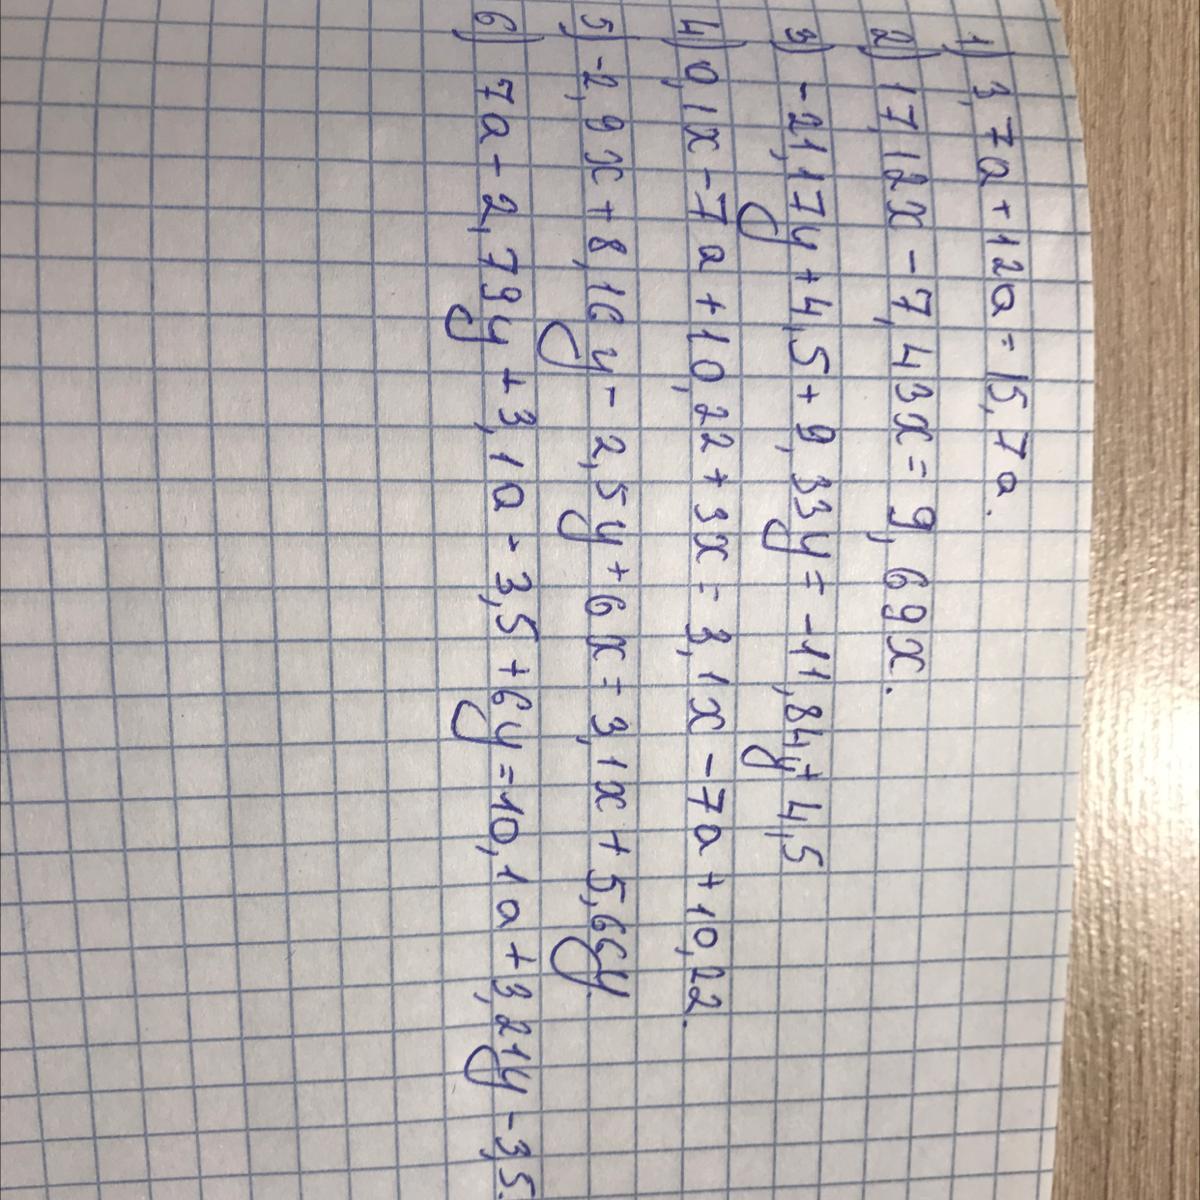 1) 3,7a+12a=15,7a.
2) 17,12x-7,43x=9,69x.
3) -21,17y+4,5+9,33y=-11,84y+4,5
4) 0,1x-7a+10,22+3x=3,1x-7a+10,22.
5) -2,9x+8,16y-2,5y+6x=3,1x+5,66y.
6) 7a-2,79y+3,1a-3,5+6y=10,1a+3,21y-3,5.